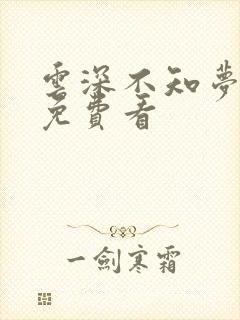 雲深不知夢
免費看
一劍寒霜